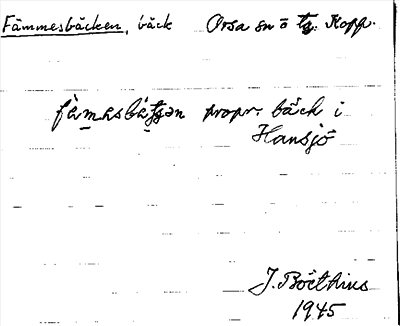 Fämmesbäcken, bäck Orsa sn ö tg. Kopp.
fàməsbátjən propr. bäck i
Hansjö
J. Boëthius
1945